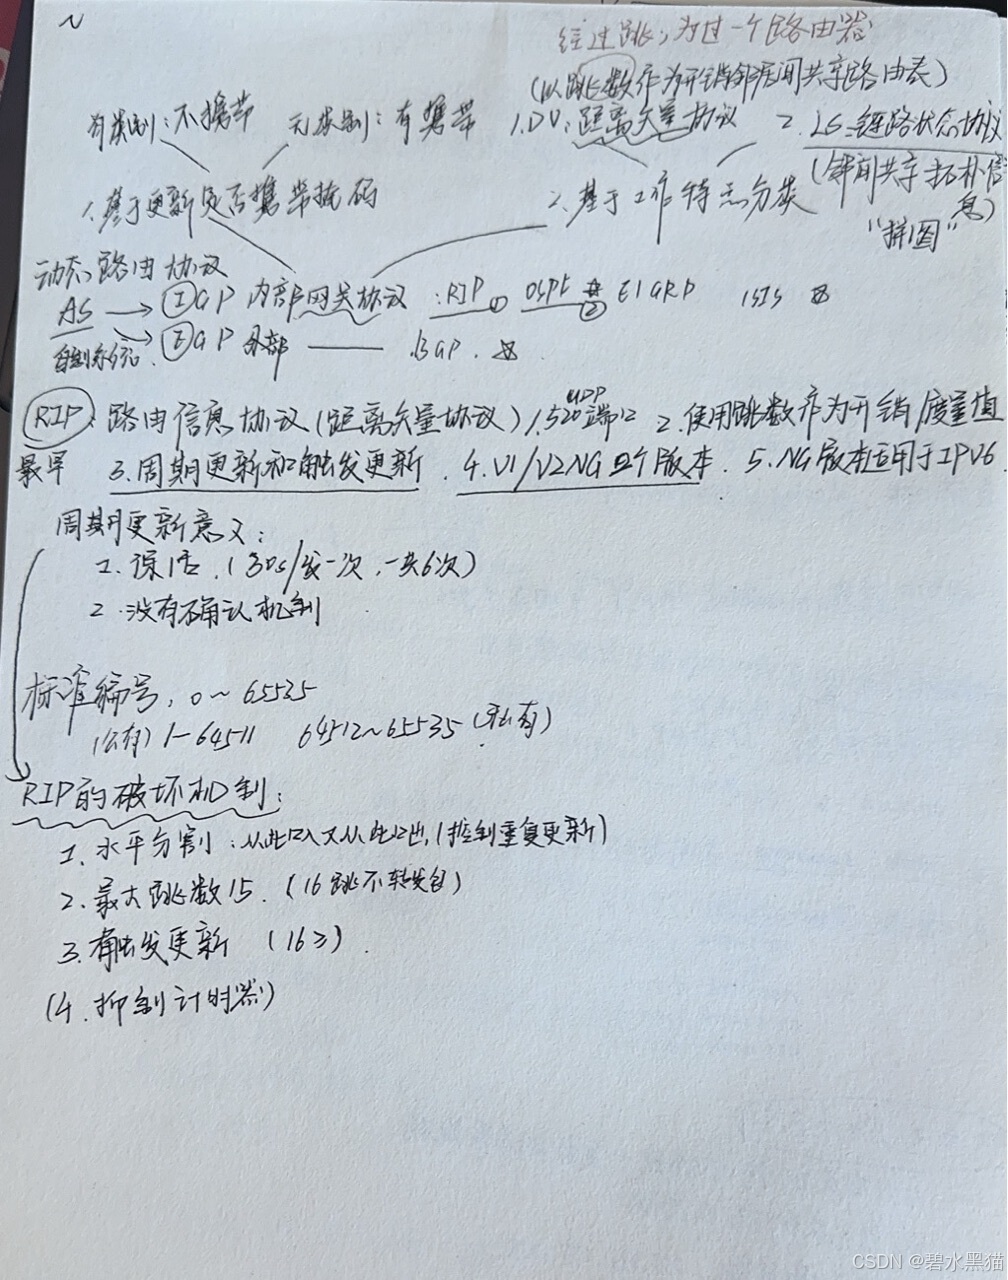 经过跳，为过一个路由器
(以跳数作为开销邻居间共享路由表)
有类别：不携带 无类别：有携带 1.DV：距离矢量协议 2.LS 链路状态协议
(邻间共享拓扑信息)
1.基于更新是否携带掩码 2.基于工作特点分类
“拼图”
动态路由协议
AS → IGP 内部网关协议：RIP① OSPF② EIGRP ISIS
自制系统 → EGP 外部 —— BGP.
RIP：路由信息协议(距离矢量协议) 1.520端口 UDP 2.使用跳数作为开销/度量值
最早 3.周期更新和触发更新. 4.V1/V2NG 三个版本. 5.NG版本适用于IPV6
周期更新意义：
1.保活.(30s/发一次，一共6次)
2.没有确认机制
标准编号，0～65535
(公有)1-64511 64512～65535(私有)
RIP的破坏机制：
1.水平分割：从此口入又从此口出,(控制重复更新)
2.最大跳数15.(16跳不转发包)
3.触发更新 (16≥).
(4.抑制计时器)
CSDN @碧水黑猫